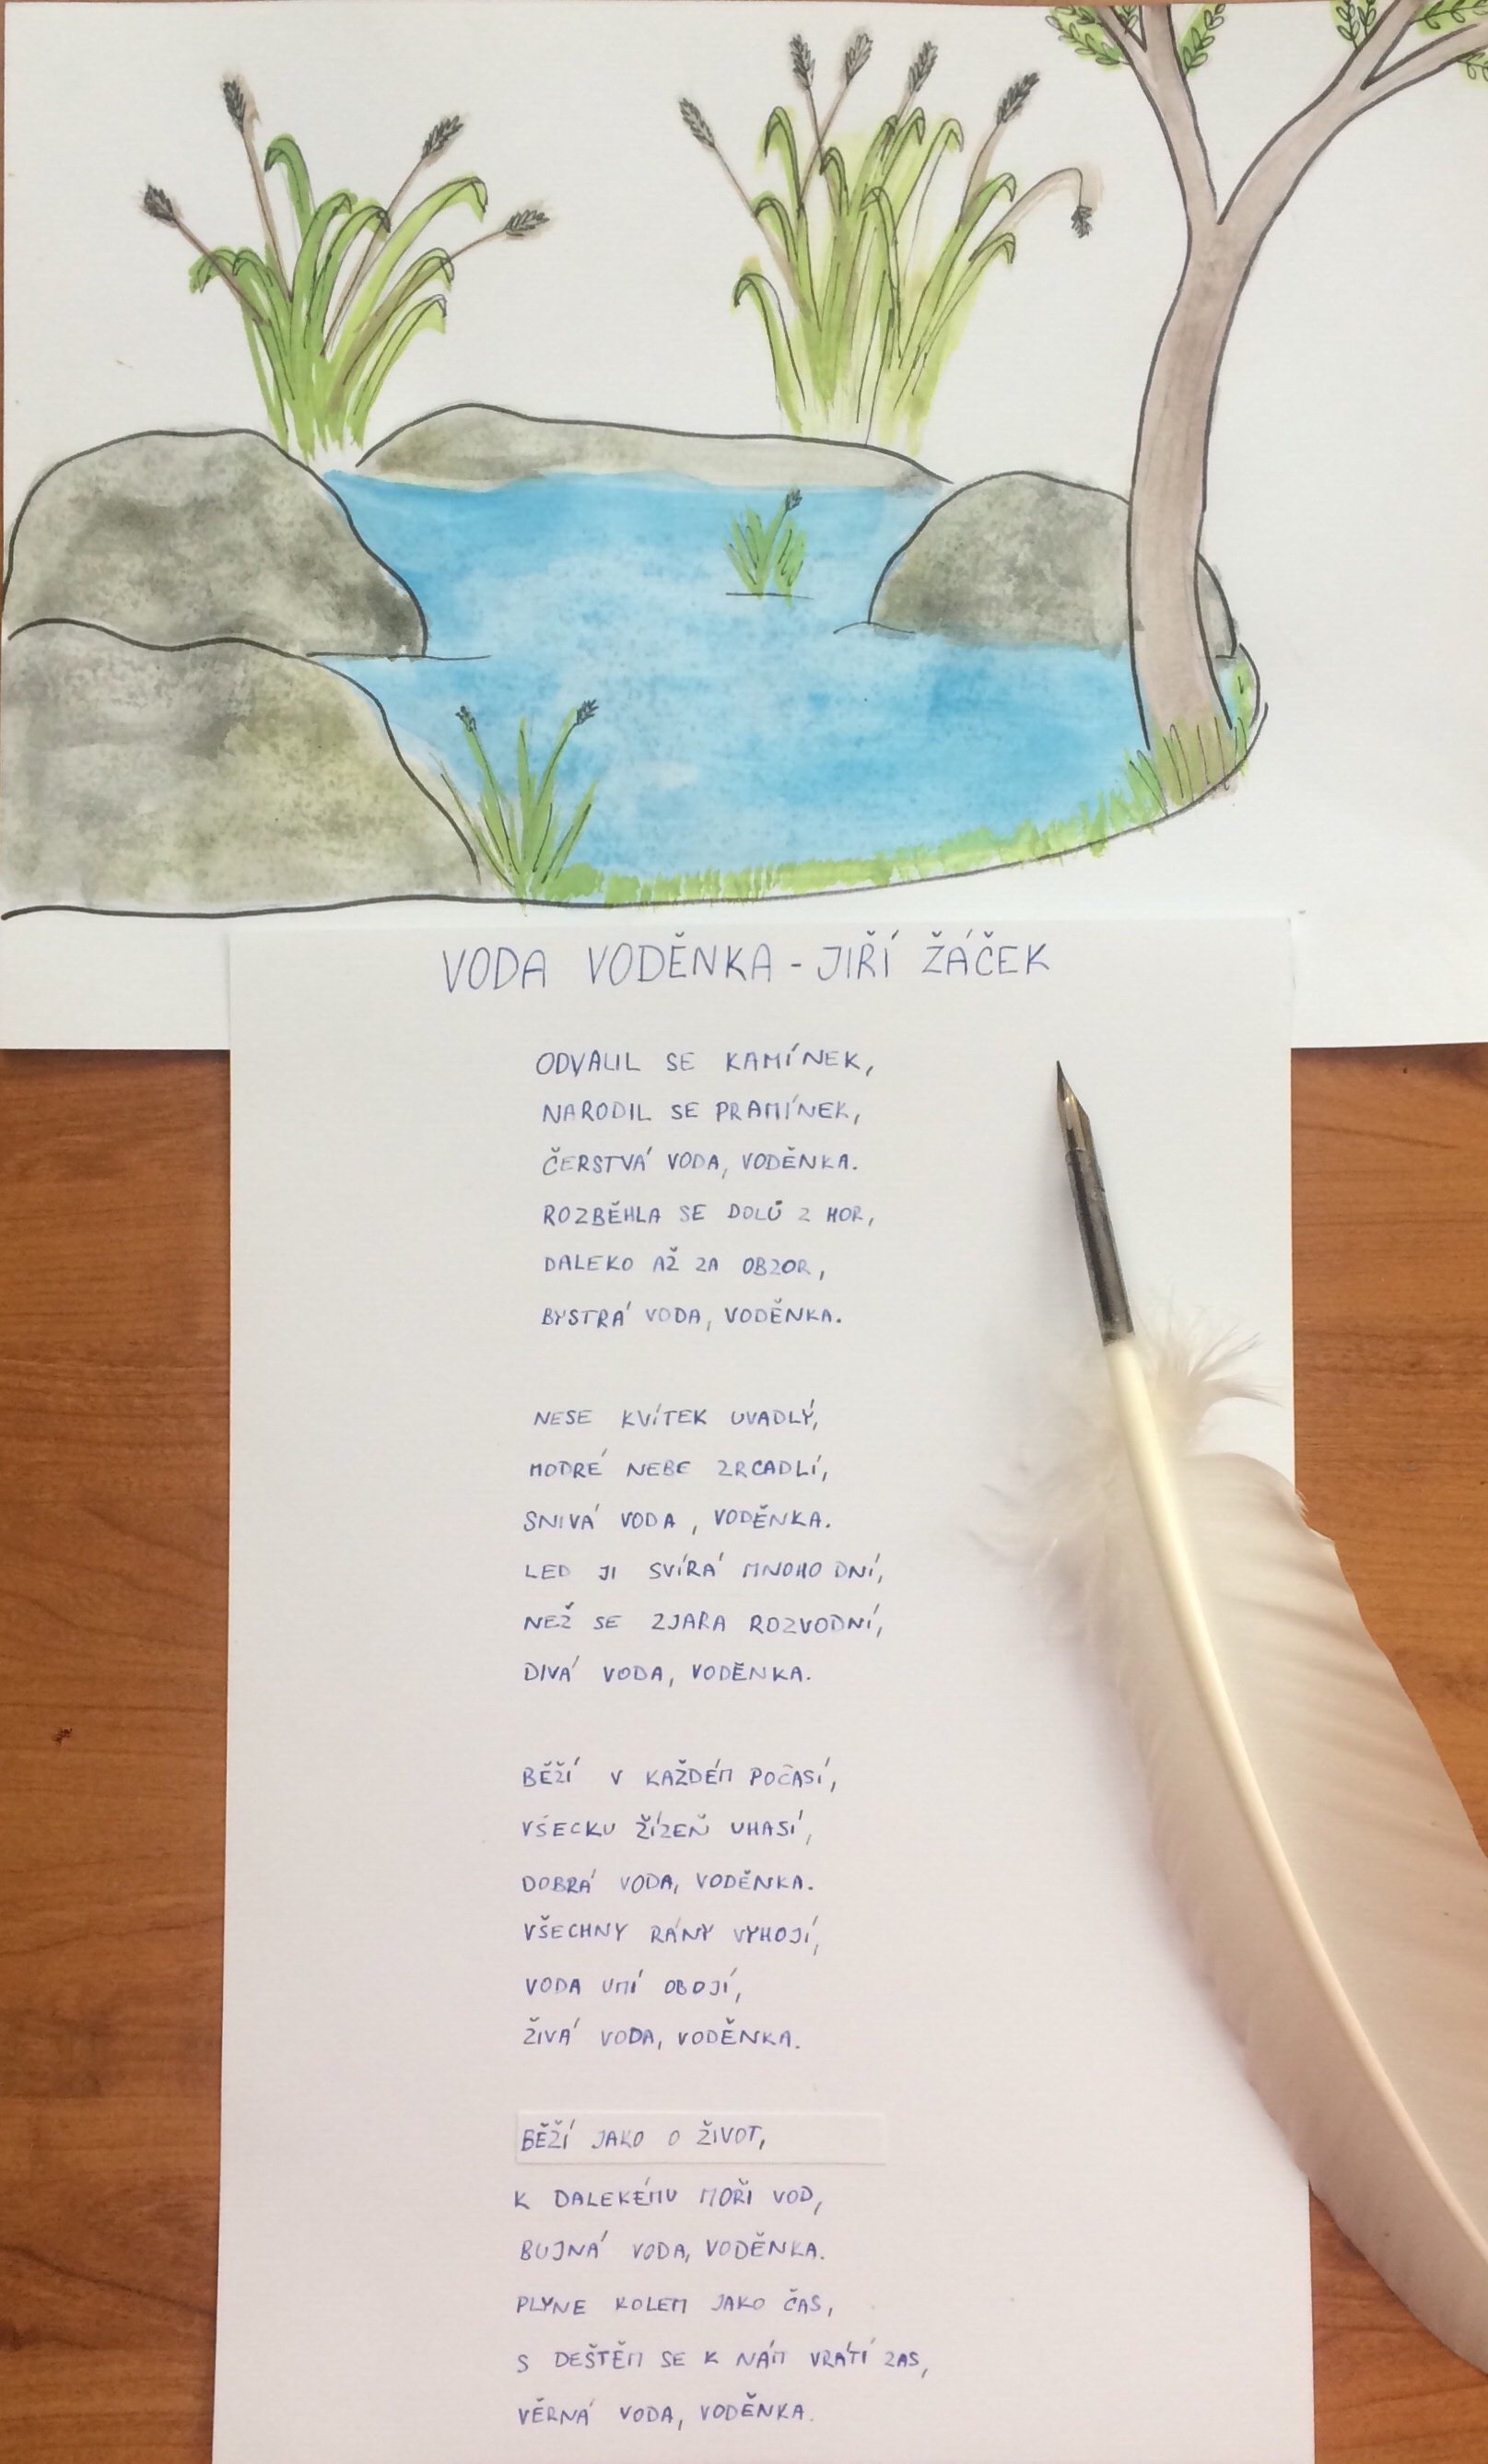 VODA VODĚNKA - JIŘÍ ŽÁČEK
ODVALIL SE KAMÍNEK,
NARODIL SE PRAMÍNEK,
ČERSTVÁ VODA, VODĚNKA.
ROZBĚHLA SE DOLŮ Z HOR,
DALEKO AŽ ZA OBZOR,
BYSTRÁ VODA, VODĚNKA.
NESE KVÍTEK UVADLÝ,
MODRÉ NEBE ZRCADLÍ,
SNIVÁ VODA, VODĚNKA.
LED JI SVÍRÁ MNOHO DNÍ,
NEŽ SE ZJARA ROZVODNÍ,
DIVÁ VODA, VODĚNKA.
BĚŽÍ V KAŽDÉM POČASÍ,
VŠECKU ŽÍZEŇ UHASÍ,
DOBRÁ VODA, VODĚNKA.
VŠECHNY RÁNY VYHOJÍ,
VODA UMÍ OBOJÍ,
ŽIVÁ VODA, VODĚNKA.
BĚŽÍ JAKO O ŽIVOT,
K DALEKÉMU MOŘI VOD,
BUJNÁ VODA, VODĚNKA.
PLYNE KOLEM JAKO ČAS,
S DEŠTĚM SE K NÁM VRÁTÍ ZAS,
VĚRNÁ VODA, VODĚNKA.